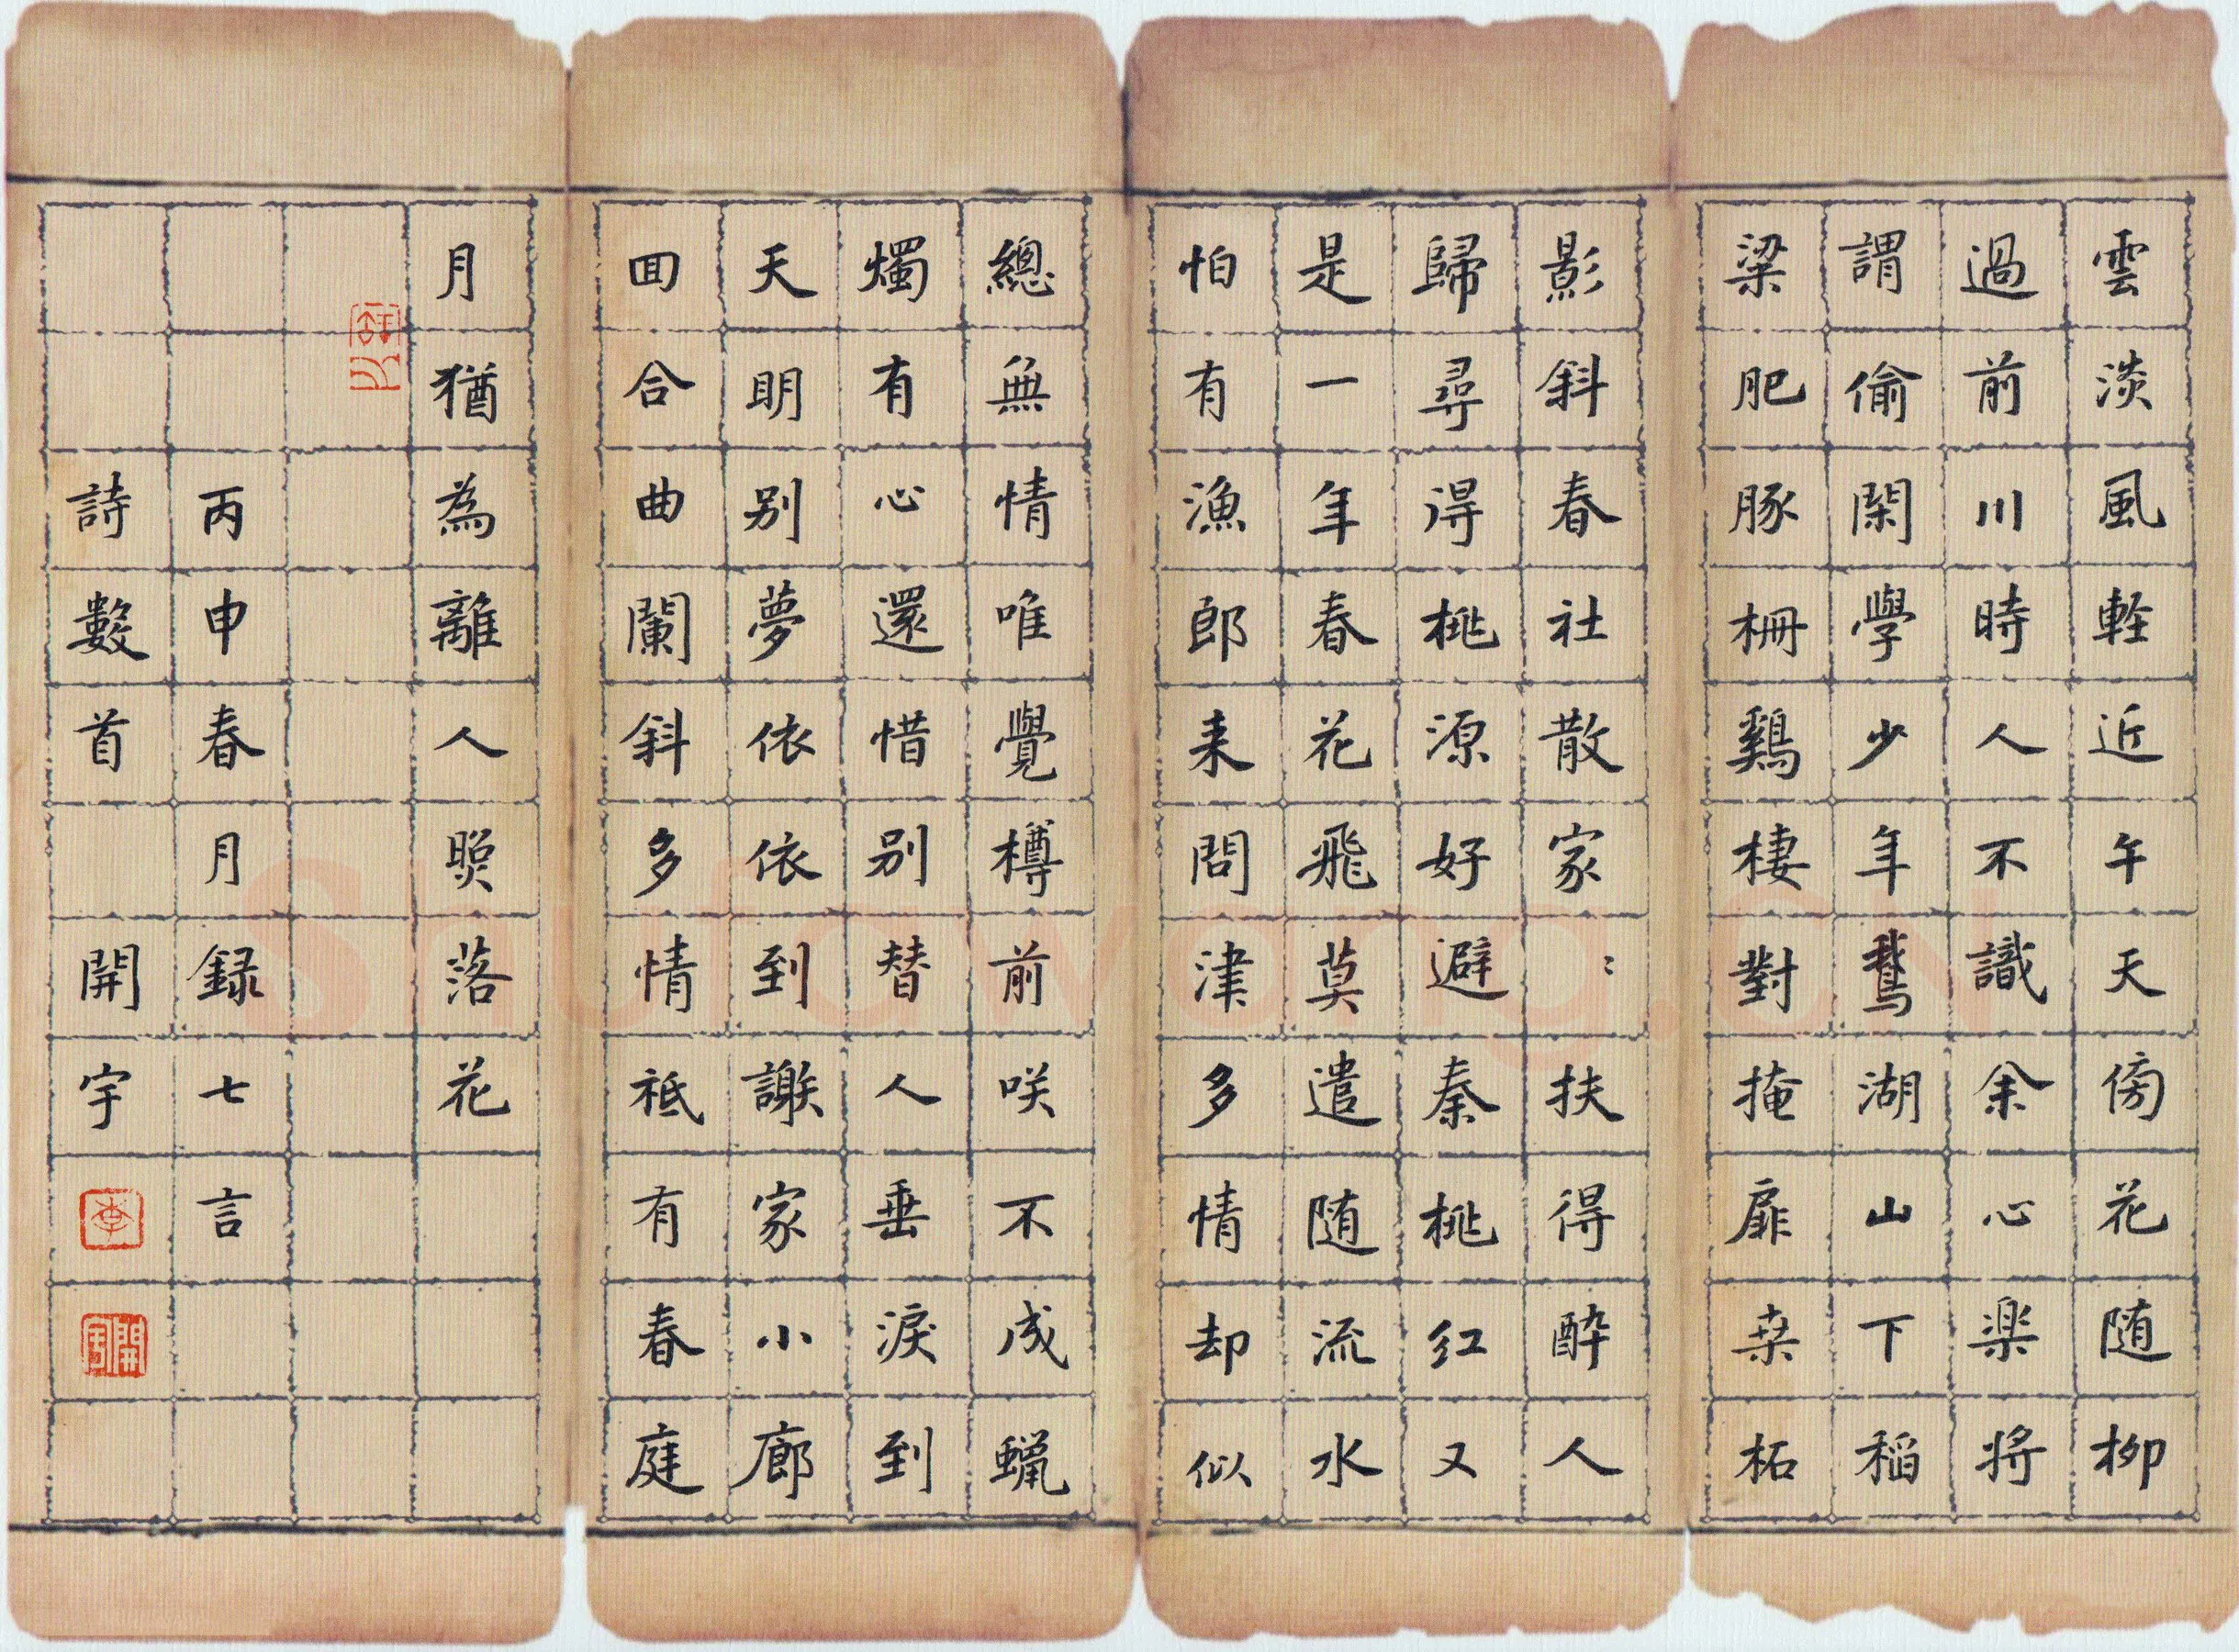 雲淡風軽近午天傍花随柳
過前川時人不識余心楽將
謂偷閑學少年鵞湖山下稻
粱肥豚栅鷄棲對掩扉桒柘
影斜春社散家〻扶得醉人
歸尋得桃源好避秦桃红又
是一年春花飛莫遣随流水
怕有漁郎来問津多情却似
總無情唯覺樽前咲不成蠟
燭有心還惜别替人垂淚到
天明别夢依依到謝家小廊
回合曲闌斜多情祗有春庭
月猶為離人照落花
丙申春月録七言
詩數首 開宇